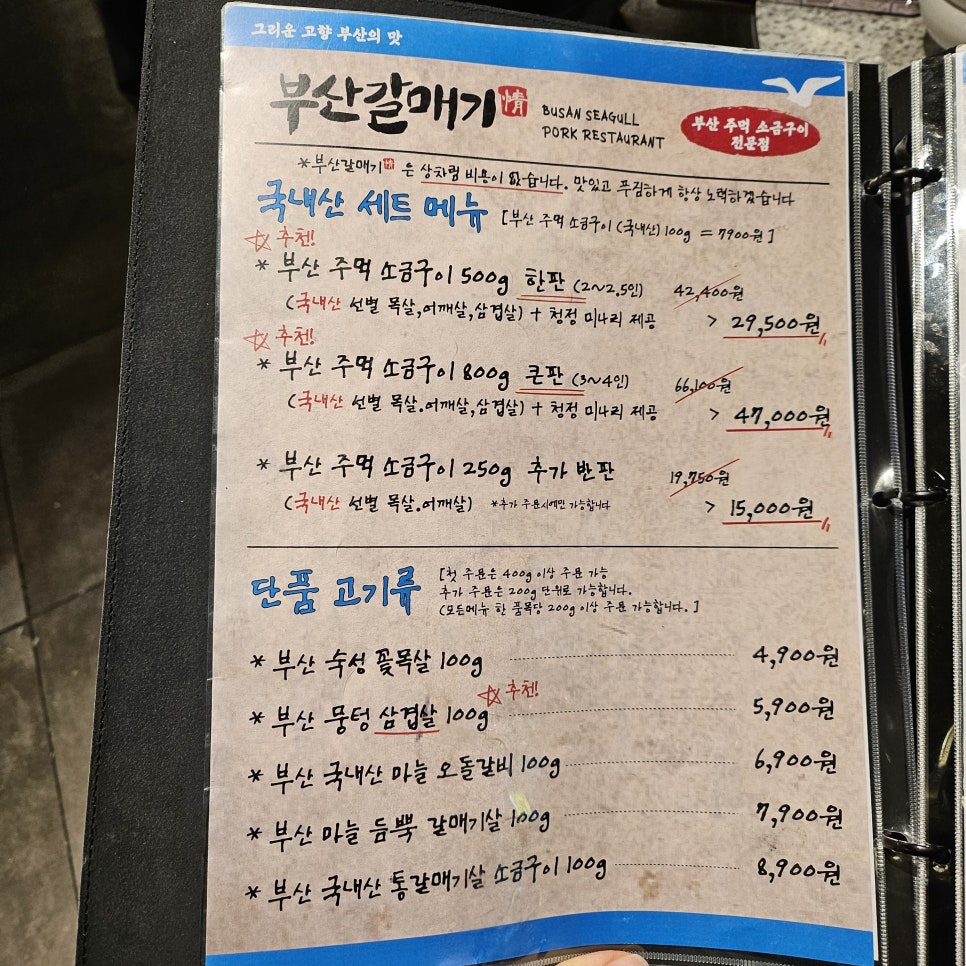 그리운 고향 부산의 맛
부산갈매기 情
BUSAN SEAGULL
PORK RESTAURANT
부산 주먹 소금구이
전문점
*부산갈매기情은 상차림 비용이 없습니다. 맛있고 푸짐하게 항상 노력하겠습니다
국내산 세트 메뉴 [부산 주먹 소금구이 (국내산) 100g = 7900원]
추천!
* 부산 주먹 소금구이 500g 한판 (2~2.5인) 42,400원
(국내산 선별 목살,어깨살,삼겹살) + 청정 미나리 제공 > 29,500원
추천!
* 부산 주먹 소금구이 800g 큰판 (3~4인) 66,100원
(국내산 선별 목살.어깨살,삼겹살) + 청정 미나리 제공 > 47,000원
* 부산 주먹 소금구이 250g 추가 반판 19,750원
(국내산 선별 목살.어깨살) *추가 주문시에만 가능합니다 > 15,000원
단품 고기류
[첫 주문은 400g 이상 주문 가능
추가 주문은 200g 단위로 가능합니다.
(모든메뉴 한 품목당 200g 이상 주문 가능합니다.]
* 부산 숙성 꽃목살 100g 4,900원
추천!
* 부산 뭉텅 삼겹살 100g 5,900원
* 부산 국내산 마늘 오돌갈비 100g 6,900원
* 부산 마늘 듬뿍 갈매기살 100g 7,900원
* 부산 국내산 통갈매기살 소금구이 100g 8,900원